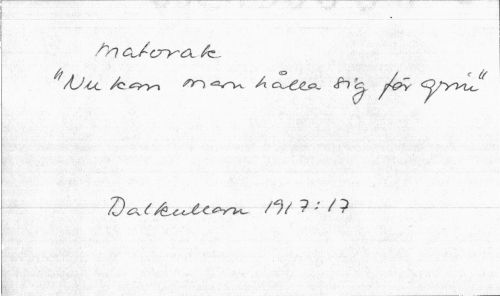 matorak
"Nu kan man hålla sig för grin"
Dalkullan 1917:17